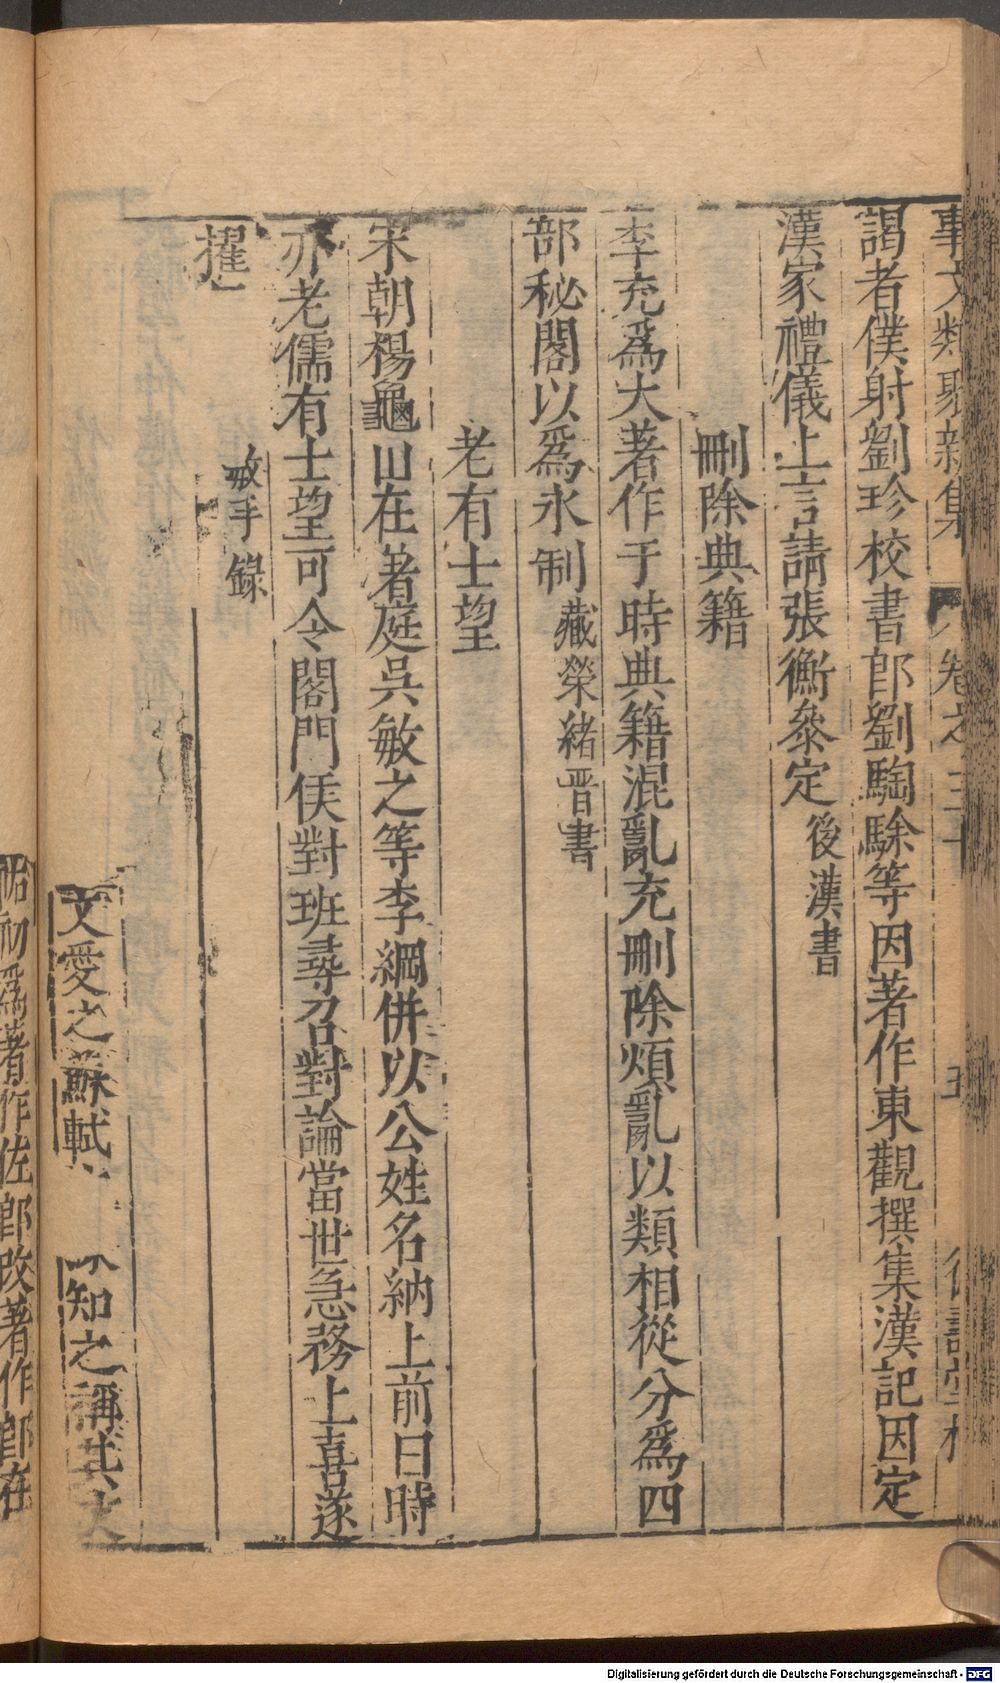 事文類聚新集 卷之三十 五 德壽堂梓
謁者僕射劉珍校書郎劉騊駼等因著作東觀撰集漢記因定
漢家禮儀上言請張衡叅定後漢書
刪除典籍
李充爲大著作于時典籍混亂充刪除煩亂以類相從分爲四
部秘閣以爲永制臧榮緒晋書
老有士望
宋朝楊龜山在著庭吳敏之等李綱併以公姓名納上前曰時
亦老儒有士望可令閤門俟對班尋召對論當世急務上喜遂
擢 敏手錄
文愛之蘇軾 知之稱其文
祐初爲著作佐郎改著作郎在
Digitalisierung gefördert durch die Deutsche Forschungsgemeinschaft - DFG